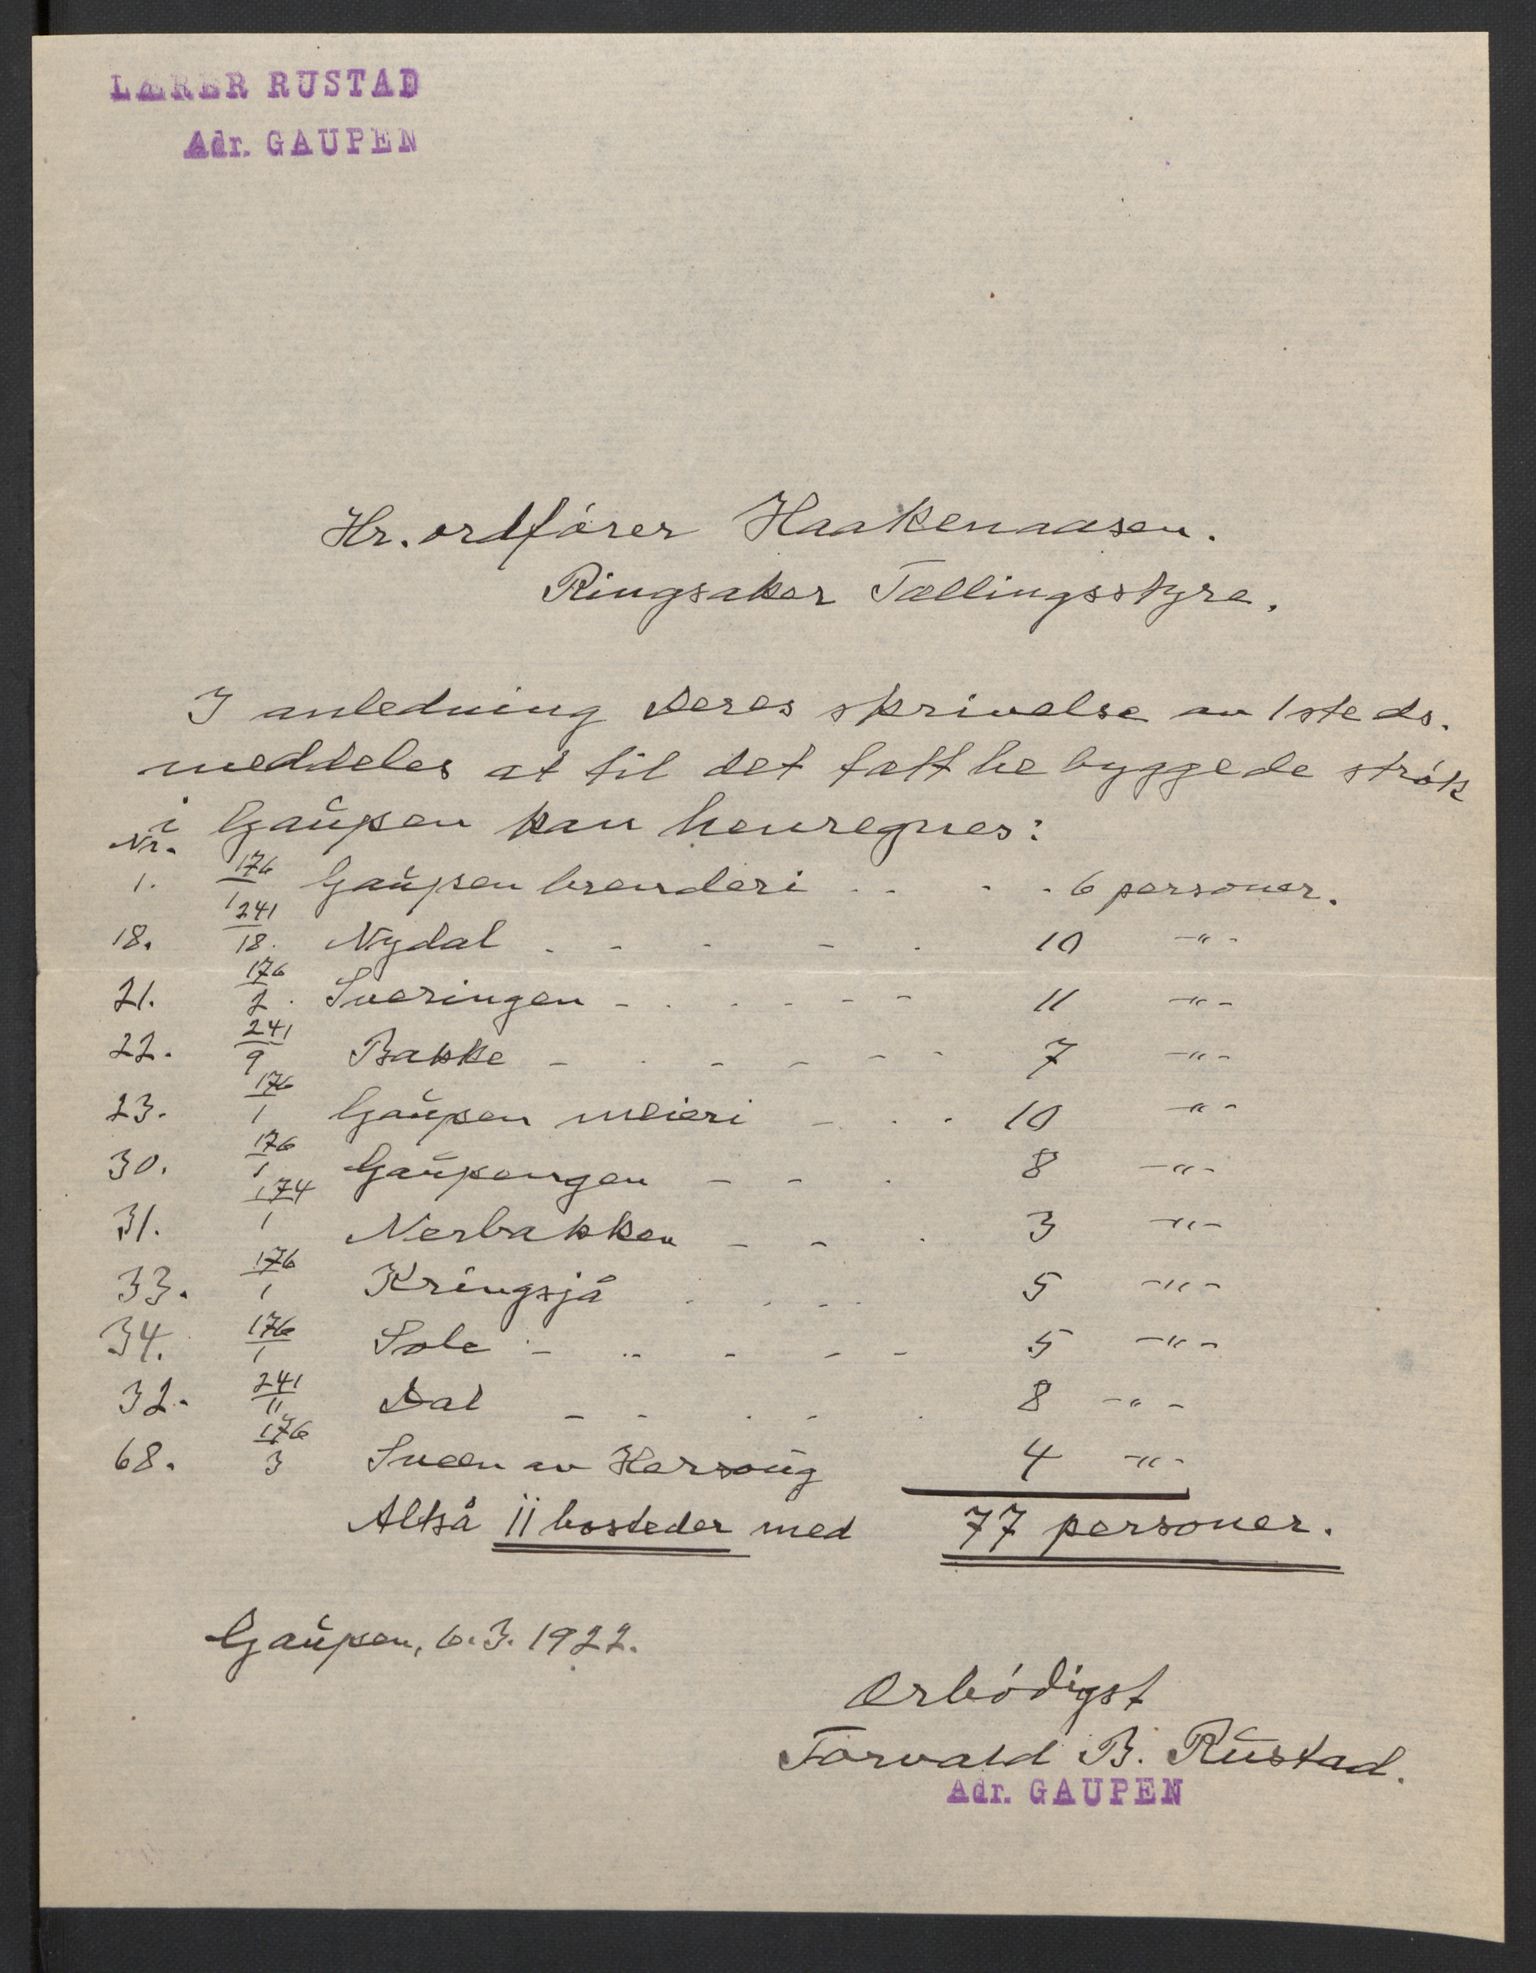 LÆRER RUSTAD
Adr. GAUPEN
Hr. ordfører Haakenaasen.
Ringsaker Tællingsstyre.
I anledning Deres skrivelse av 1ste ds.
meddeles at til det tætt bebyggede strøk
i Gaupen kan henregnes:
Nr.
1. 176/1 Gaupen brenderi . . - - 6 personer.
18. 241/18. Nydal - - - - . 10 -"-
21. 176/2. Sveringen - . - - - - 11 -"-
22. 241/9 Bakke - . - - - - 7 -"-
23. 176/1 Gaupen meieri - . - 10 -"-
30. 176/1 Gaupengen - - . 8 -"-
31. 174/1 Nerbakken - - . 3 -"-
33. 176/1 Kringsjå . . - - 5 -"-
34. 176/1 Sole - .. - - - 5 -"-
32. 241/11 Dal - - . - . 8 -"-
68. 176/3 Sveen av Hersoug 4 -"-
Altså 11 bosteder med 77 personer.
Gaupen, 6.3.1922.
Ærbødigst
Torvald B. Rustad.
Adr. GAUPEN